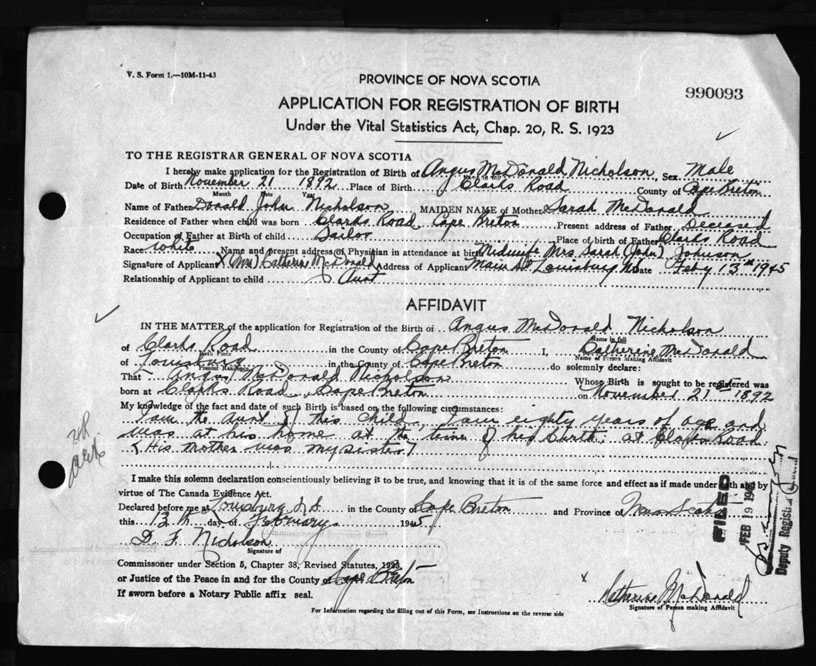 V. S. Form 1.—10M-11-43
PROVINCE OF NOVA SCOTIA
990093
APPLICATION FOR REGISTRATION OF BIRTH
Under the Vital Statistics Act, Chap. 20, R. S. 1923
TO THE REGISTRAR GENERAL OF NOVA SCOTIA
I hereby make application for the Registration of Birth of Angus MacDonald Nicholson, Sex Male
Name in full
Date of Birth November 21 1892 Place of Birth Clarks Road County of Cape Breton
Month Date Year
Name of Father Donald John Nicholson MAIDEN NAME of Mother Sarah McDonald
Residence of Father when child was born Clarks Road Cape Breton Present address of Father Deceased
Occupation of Father at Birth of child Sailor Place of birth of Father Clarks Road
Race White Name and present address of Physician in attendance at birth Midwife Mrs Sarah (John) Johnson
Signature of Applicant X (Mrs) Catherine McDonald Address of Applicant Main St Louisburg NS Date Feby 13th 1945
Relationship of Applicant to child Aunt
AFFIDAVIT
IN THE MATTER of the application for Registration of the Birth of Angus McDonald Nicholson
Name in full
of Clarks Road in the County of Cape Breton I, Catherine McDonald
Birth Place Name of Person making Affidavit
of Louisburg in the County of Cape Breton do solemnly declare:
Present Residence
That Angus MacDonald Nicholson Whose Birth is sought to be registered was
born at Clarks Road, Cape Breton on November 21st 1892
My knowledge of the fact and date of such Birth is based on the following circumstances:
I am the Aunt of this child, I am eighty years of age and
was at his home at the time of his birth, at Clarks Road
(His mother was my sister)
I make this solemn declaration conscientiously believing it to be true, and knowing that it is of the same force and effect as if made under oath and by
virtue of The Canada Evidence Act.
Declared before me at Louisburg N.S. in the County of Cape Breton and Province of Nova Scotia
this 13th day of February 1945
D. F. Nicholson
Signature of
Commissioner under Section 5, Chapter 38, Revised Statutes, 1923,
or Justice of the Peace in and for the County of Cape Breton
If sworn before a Notary Public affix seal.
X Katherine McDonald
Signature of Person making Affidavit
For Information regarding the filling out of this Form, see Instructions on the reverse side
FILED
FEB 19 1945
Deputy Registrar